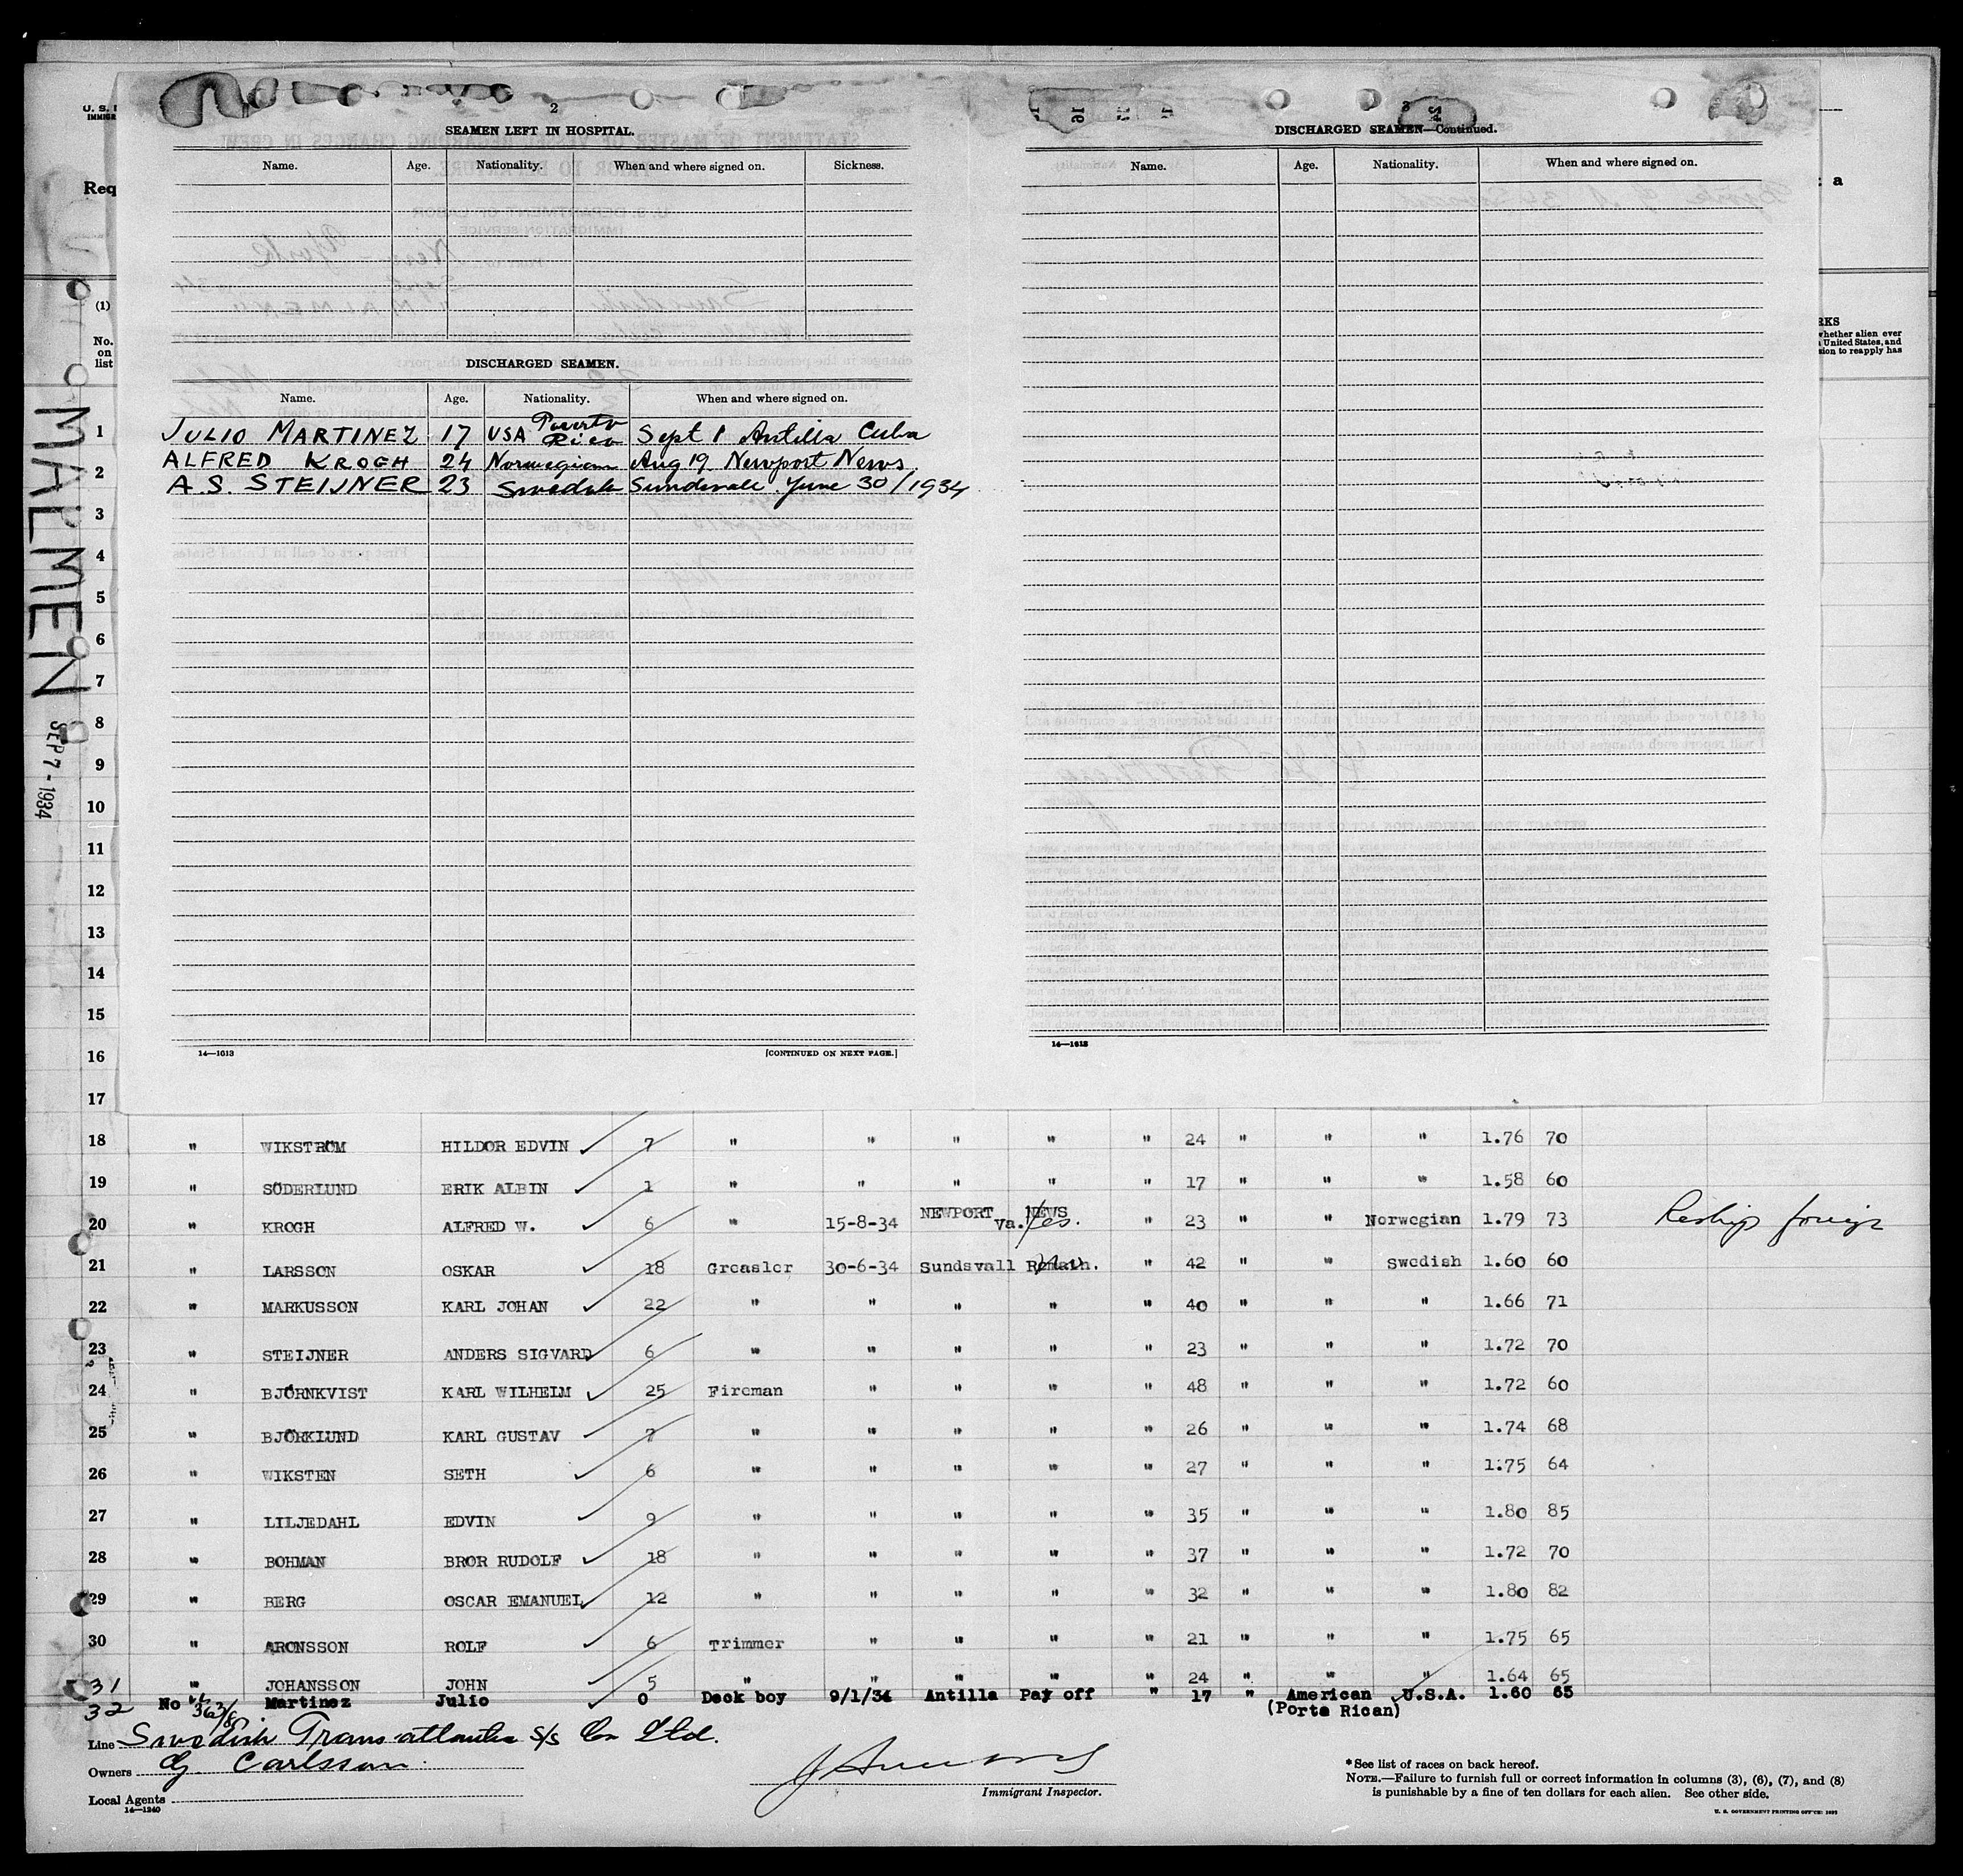 2
SEAMEN LEFT IN HOSPITAL.
Name. Age. Nationality. When and where signed on. Sickness.
DISCHARGED SEAMEN.
Name. Age. Nationality. When and where signed on.
JULIO MARTINEZ 17 USA Puerto Rico Sept 1 Antilla Cuba
ALFRED KROGH 24 Norwegian Aug 19 Newport News
A.S. STEIJNER 23 Swedish Sundsvall June 30/1934
14—1613
[CONTINUED ON NEXT PAGE.]
3
DISCHARGED SEAMEN—Continued.
Name. Age. Nationality. When and where signed on.
14—1613
U. S.
IMMIGR
Req
a
(1)
No.
on
list
RKS
whether alien ever
United States, and
sion to reapply has
MALMEN
SEP 7 - 1934
1
2
3
4
5
6
7
8
9
10
11
12
13
14
15
16
17
18 " WIKSTROM HILDOR EDVIN 7 " " " " " 24 " " " 1.76 70
19 " SÖDERLUND ERIK ALBIN 1 " " " " " 17 " " " 1.58 60
20 " KROGH ALFRED W. 6 " 15-8-34 NEWPORT NEWS Va. Yes. " 23 " " Norwegian 1.79 73 Reship foreign
21 " LARSSON OSKAR 18 Greasler 30-6-34 Sundsvall Remain. " 42 " " Swedish 1.60 60
22 " MARKUSSON KARL JOHAN 22 " " " " " 40 " " " 1.66 71
23 " STEIJNER ANDERS SIGVARD 6 " " " " " 23 " " " 1.72 70
24 " BJÖRNKVIST KARL WILHELM 25 Fireman " " " " 48 " " " 1.72 60
25 " BJÖRKLUND KARL GUSTAV 7 " " " " " 26 " " " 1.74 68
26 " WIKSTEN SETH 6 " " " " " 27 " " " 1.75 64
27 " LILJEDAHL EDVIN 9 " " " " " 35 " " " 1.80 85
28 " BOHMAN BROR RUDOLF 18 " " " " " 37 " " " 1.72 70
29 " BERG OSCAR EMANUEL 12 " " " " " 32 " " " 1.80 82
30 " ARONSSON ROLF 6 Trimmer " " " " 21 " " " 1.75 65
31 " JOHANSSON JOHN 5 " " " " " 24 " " 1.64 65
32 No Martinez Julio 0 Deck boy 9/1/34 Antilla Pay off " 17 " American U.S.A. 1.60 65
(Porto Rican)
Line Swedish Transatlantic S/S Co Ltd.
Owners G. Carlsson
Local Agents
14—1240
Immigrant Inspector.
* See list of races on back hereof.
NOTE.—Failure to furnish full or correct information in columns (3), (6), (7), and (8)
is punishable by a fine of ten dollars for each alien. See other side.
U. S. GOVERNMENT PRINTING OFFICE: